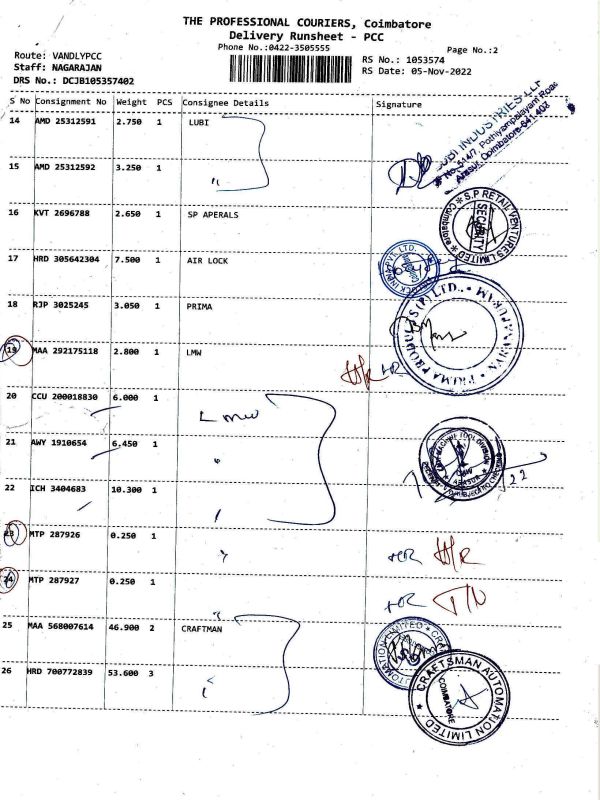 THE PROFESSIONAL COURIERS, Coimbatore
Delivery Runsheet - PCC
Phone No.:0422-3505555
Page No.:2
Route: VANDLYPCC
Staff: NAGARAJAN
DRS No.: DCJB105357402
RS No.: 1053574
RS Date: 05-Nov-2022
S No Consignment No Weight PCS Consignee Details Signature
14 AMD 25312591 2.750 1 LUBI
LUBI INDUSTRIES LLP
No. 514/7, Pothiyampalayam Road
Arasur, Coimbatore-641 408
15 AMD 25312592 3.250 1 "
16 KVT 2696788 2.650 1 SP APERALS
S.P RETAIL VENTURES LIMITED
SECURITY
Coimbatore
17 HRD 305642304 7.500 1 AIR LOCK
PVT. LTD.
18 RJP 3025245 3.050 1 PRIMA
PRIMA PRODUCTS (P) LTD.
19 MAA 292175118 2.800 1 LMW
H/R HR
20 CCU 200018830 6.000 1 Lmw
21 AWY 1910654 6.450 1 "
LMW MACHINE TOOL DIVISION
ARASUR
22
22 ICH 3404683 10.300 1
23 MTP 287926 0.250 1 "
HR H/R
24 MTP 287927 0.250 1 "
HR T/N
25 MAA 568007614 46.900 2 CRAFTMAN
AUTOMATION LIMITED
26 HRD 700772839 53.600 3
CRAFTSMAN AUTOMATION LIMITED
COIMBATORE